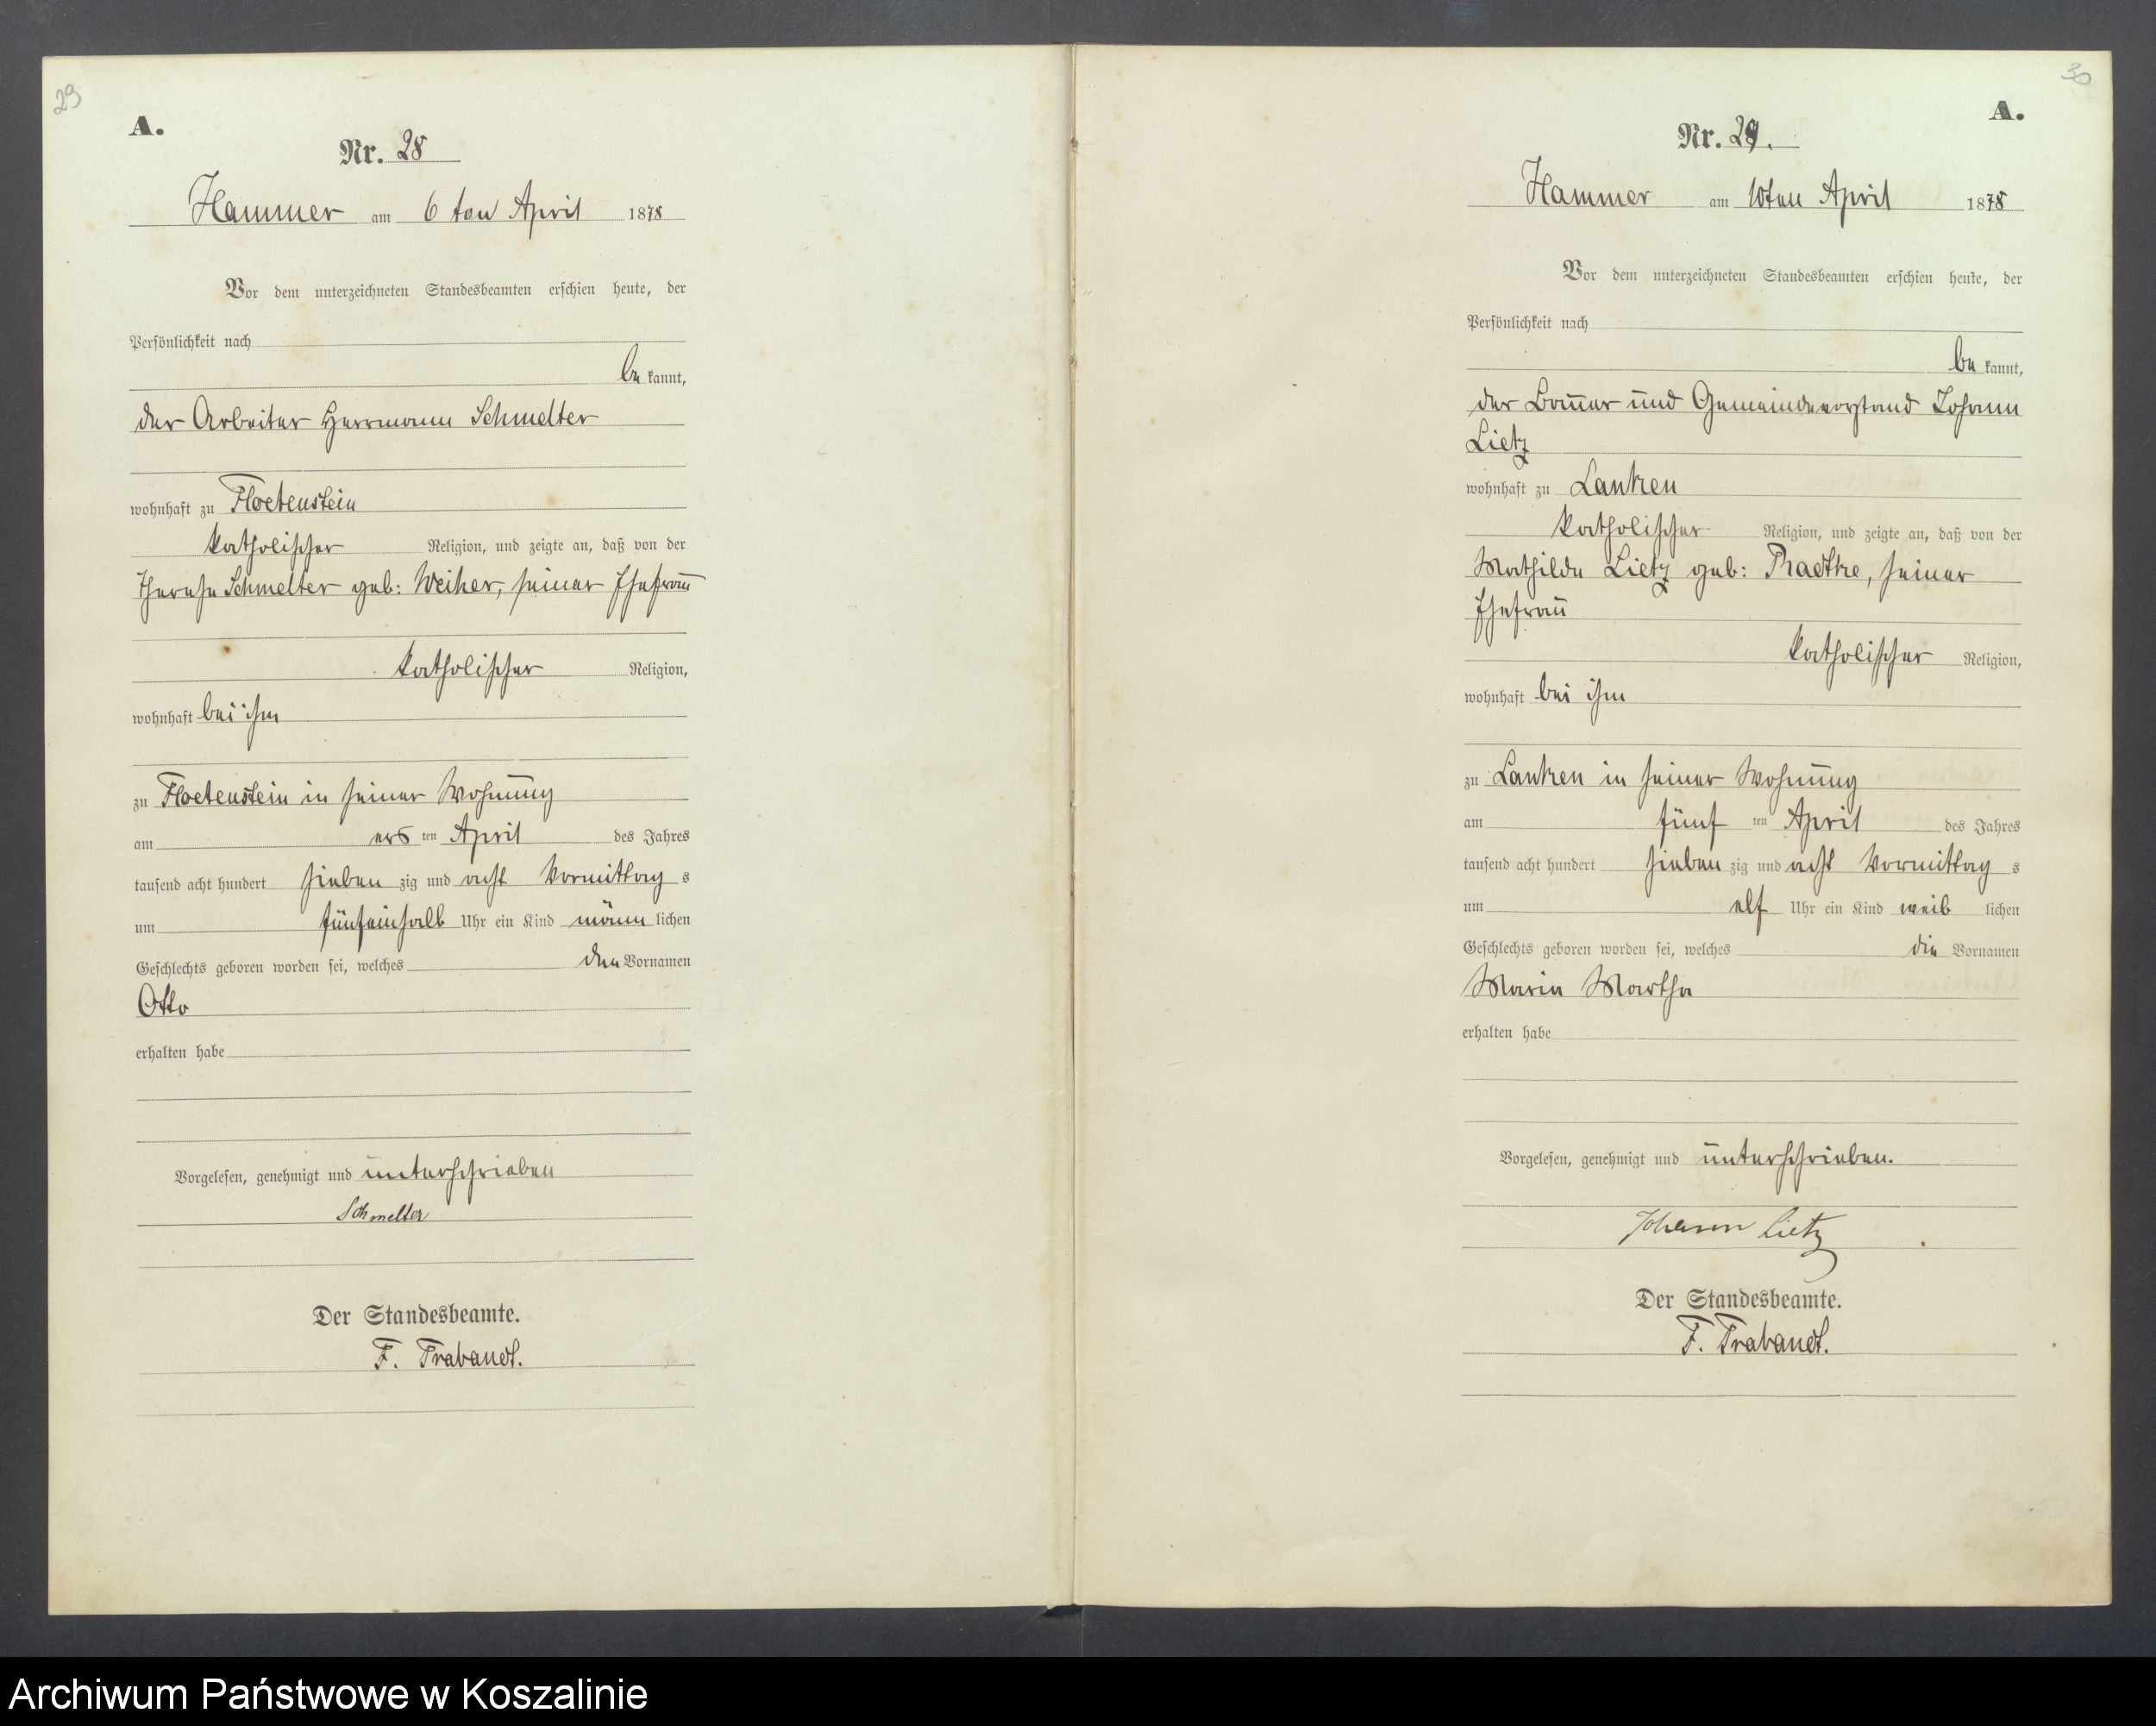 29
A.
Nr. 28
Hammer am 6 ten April 1878
Vor dem unterzeichneten Standesbeamten erschien heute, der
Persönlichkeit nach
be kannt,
der Arbeiter Herrmann Schmelter
wohnhaft zu Floetenstein
katholischer Religion, und zeigte an, daß von der
Therese Schmelter geb: Weiher, seiner Ehefrau
katholischer Religion,
wohnhaft bei ihm
zu Floetenstein in seiner Wohnung
am ers ten April des Jahres
tausend acht hundert sieben zig und acht Vormittag s
um fünfeinhalb Uhr ein Kind männ lichen
Geschlechts geboren worden sei, welches den Vornamen
Otto
erhalten habe
Vorgelesen, genehmigt und unterschrieben
Schmelter
Der Standesbeamte.
F. Trabandt.
30
A.
Nr. 29.
Hammer am 10ten April 1878
Vor dem unterzeichneten Standesbeamten erschien heute, der
Persönlichkeit nach
be kannt,
der Bauer und Gemeindevorstand Johann
Lietz
wohnhaft zu Lanken
katholischer Religion, und zeigte an, daß von der
Mathilde Lietz geb: Radtke, seiner
Ehefrau
katholischer Religion,
wohnhaft bei ihm
zu Lanken in seiner Wohnung
am fünf ten April des Jahres
tausend acht hundert sieben zig und acht Vormittag s
um elf Uhr ein Kind weib lichen
Geschlechts geboren worden sei, welches die Vornamen
Maria Martha
erhalten habe
Vorgelesen, genehmigt und unterschrieben.
Johann Lietz
Der Standesbeamte.
F. Trabandt.
Archiwum Państwowe w Koszalinie